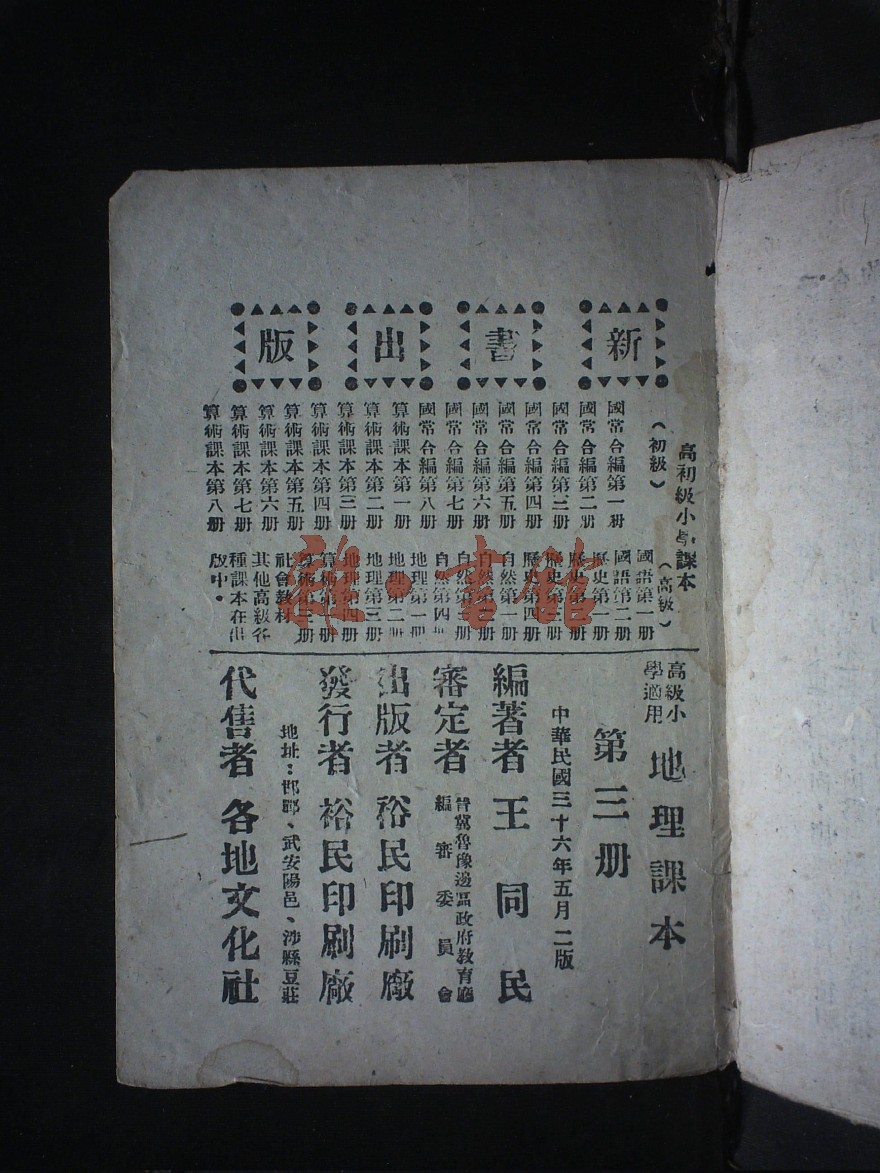 新書出版
高初級小學課本
（初級）
國常合編第一册
國常合編第二册
國常合編第三册
國常合編第四册
國常合編第五册
國常合編第六册
國常合編第七册
國常合編第八册
算術課本第一册
算術課本第二册
算術課本第三册
算術課本第四册
算術課本第五册
算術課本第六册
算術課本第七册
算術課本第八册
（高級）
國語第一册
國語第二册
歷史第一册
歷史第二册
歷史第三册
歷史第四册
自然第一册
自然第二册
自然第三册
自然第四册
地理第一册
地理第二册
地理第三册
地理第四册
算術第一册
算術第三册
社會教材
其他高級各
種課本在出
版中。
高級小
學適用
地理課本
第三册
中華民國三十六年五月二版
編著者 王同民
審定者 晉冀魯豫邊區政府教育廳
編審委員會
出版者 裕民印刷廠
發行者 裕民印刷廠
地址：邯鄲、武安陽邑、涉縣豆莊
代售者 各地文化社